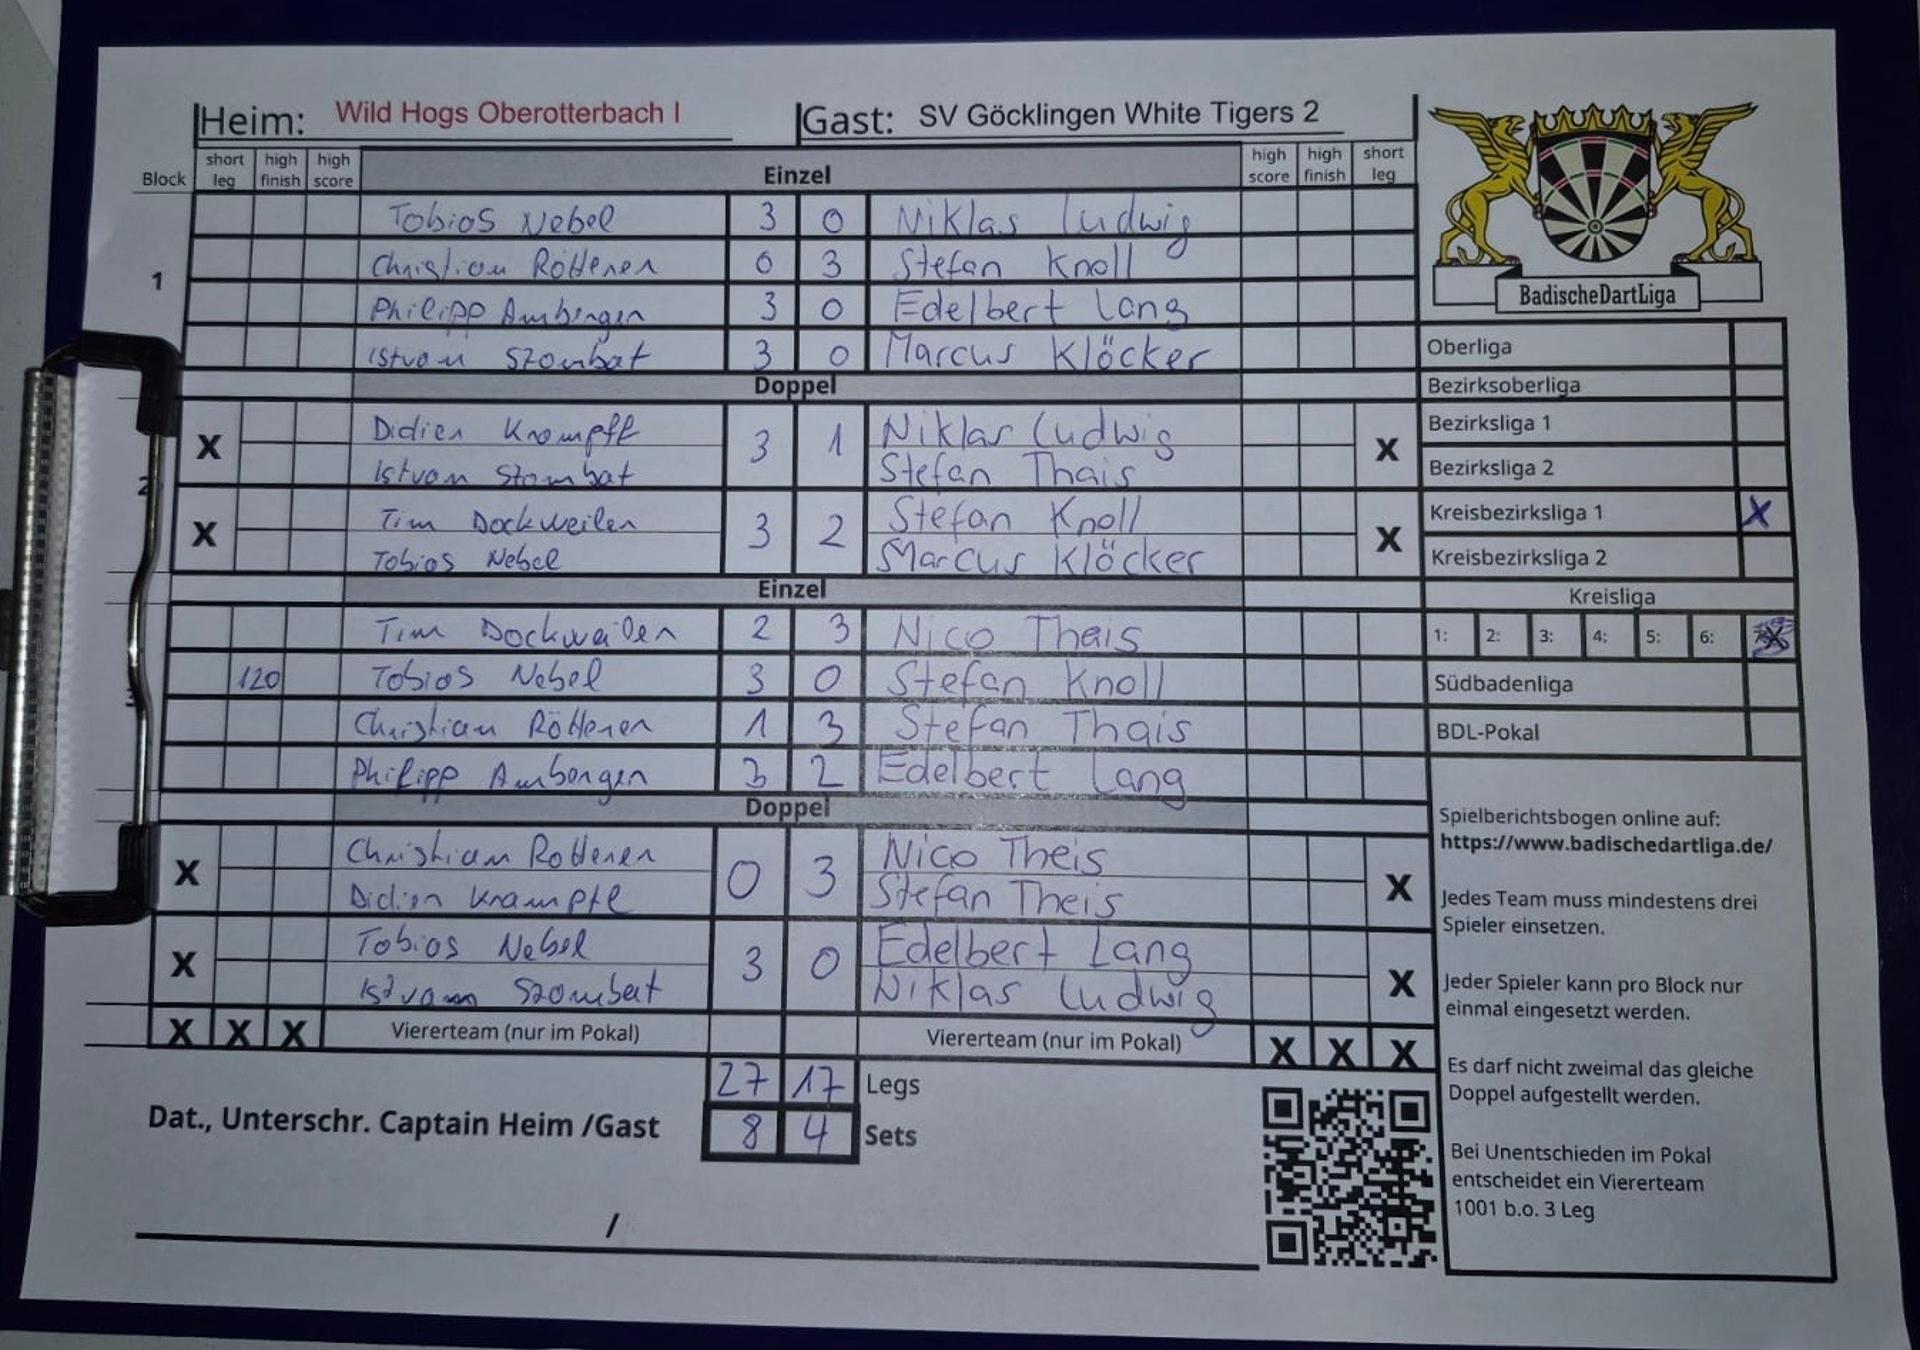 Heim: Wild Hogs Oberotterbach I Gast: SV Göcklingen White Tigers 2
Block short leg high finish high score Einzel high score high finish short leg
1
Tobias Nebel 3 0 Niklas Ludwig
Christian Rötterer 0 3 Stefan Knoll
Philipp Amberger 3 0 Edelbert Lang
Istvan Szombat 3 0 Marcus Klöcker
Doppel
2
X Didier Krampff 3 1 Niklas Ludwig X
Istvan Szombat Stefan Thais
X Tim Dockweiler 3 2 Stefan Knoll X
Tobias Nebel Marcus Klöcker
Einzel
3
Tim Dockweiler 2 3 Nico Theis
120 Tobias Nebel 3 0 Stefan Knoll
Christian Rötterer 1 3 Stefan Thais
Philipp Amberger 3 2 Edelbert Lang
Doppel
X Christian Rötterer 0 3 Nico Theis X
Didier Krampfl Stefan Theis
X Tobias Nebel 3 0 Edelbert Lang X
Istvan Szombat Niklas Ludwig
X X X Viererteam (nur im Pokal) Viererteam (nur im Pokal) X X X
27 17 Legs
Dat., Unterschr. Captain Heim /Gast 8 4 Sets
/
BadischeDartLiga
Oberliga
Bezirksoberliga
Bezirksliga 1
Bezirksliga 2
Kreisbezirksliga 1 X
Kreisbezirksliga 2
Kreisliga
1: 2: 3: 4: 5: 6:
Südbadenliga
BDL-Pokal
Spielberichtsbogen online auf:
https://www.badischedartliga.de/
Jedes Team muss mindestens drei
Spieler einsetzen.
Jeder Spieler kann pro Block nur
einmal eingesetzt werden.
Es darf nicht zweimal das gleiche
Doppel aufgestellt werden.
Bei Unentschieden im Pokal
entscheidet ein Viererteam
1001 b.o. 3 Leg